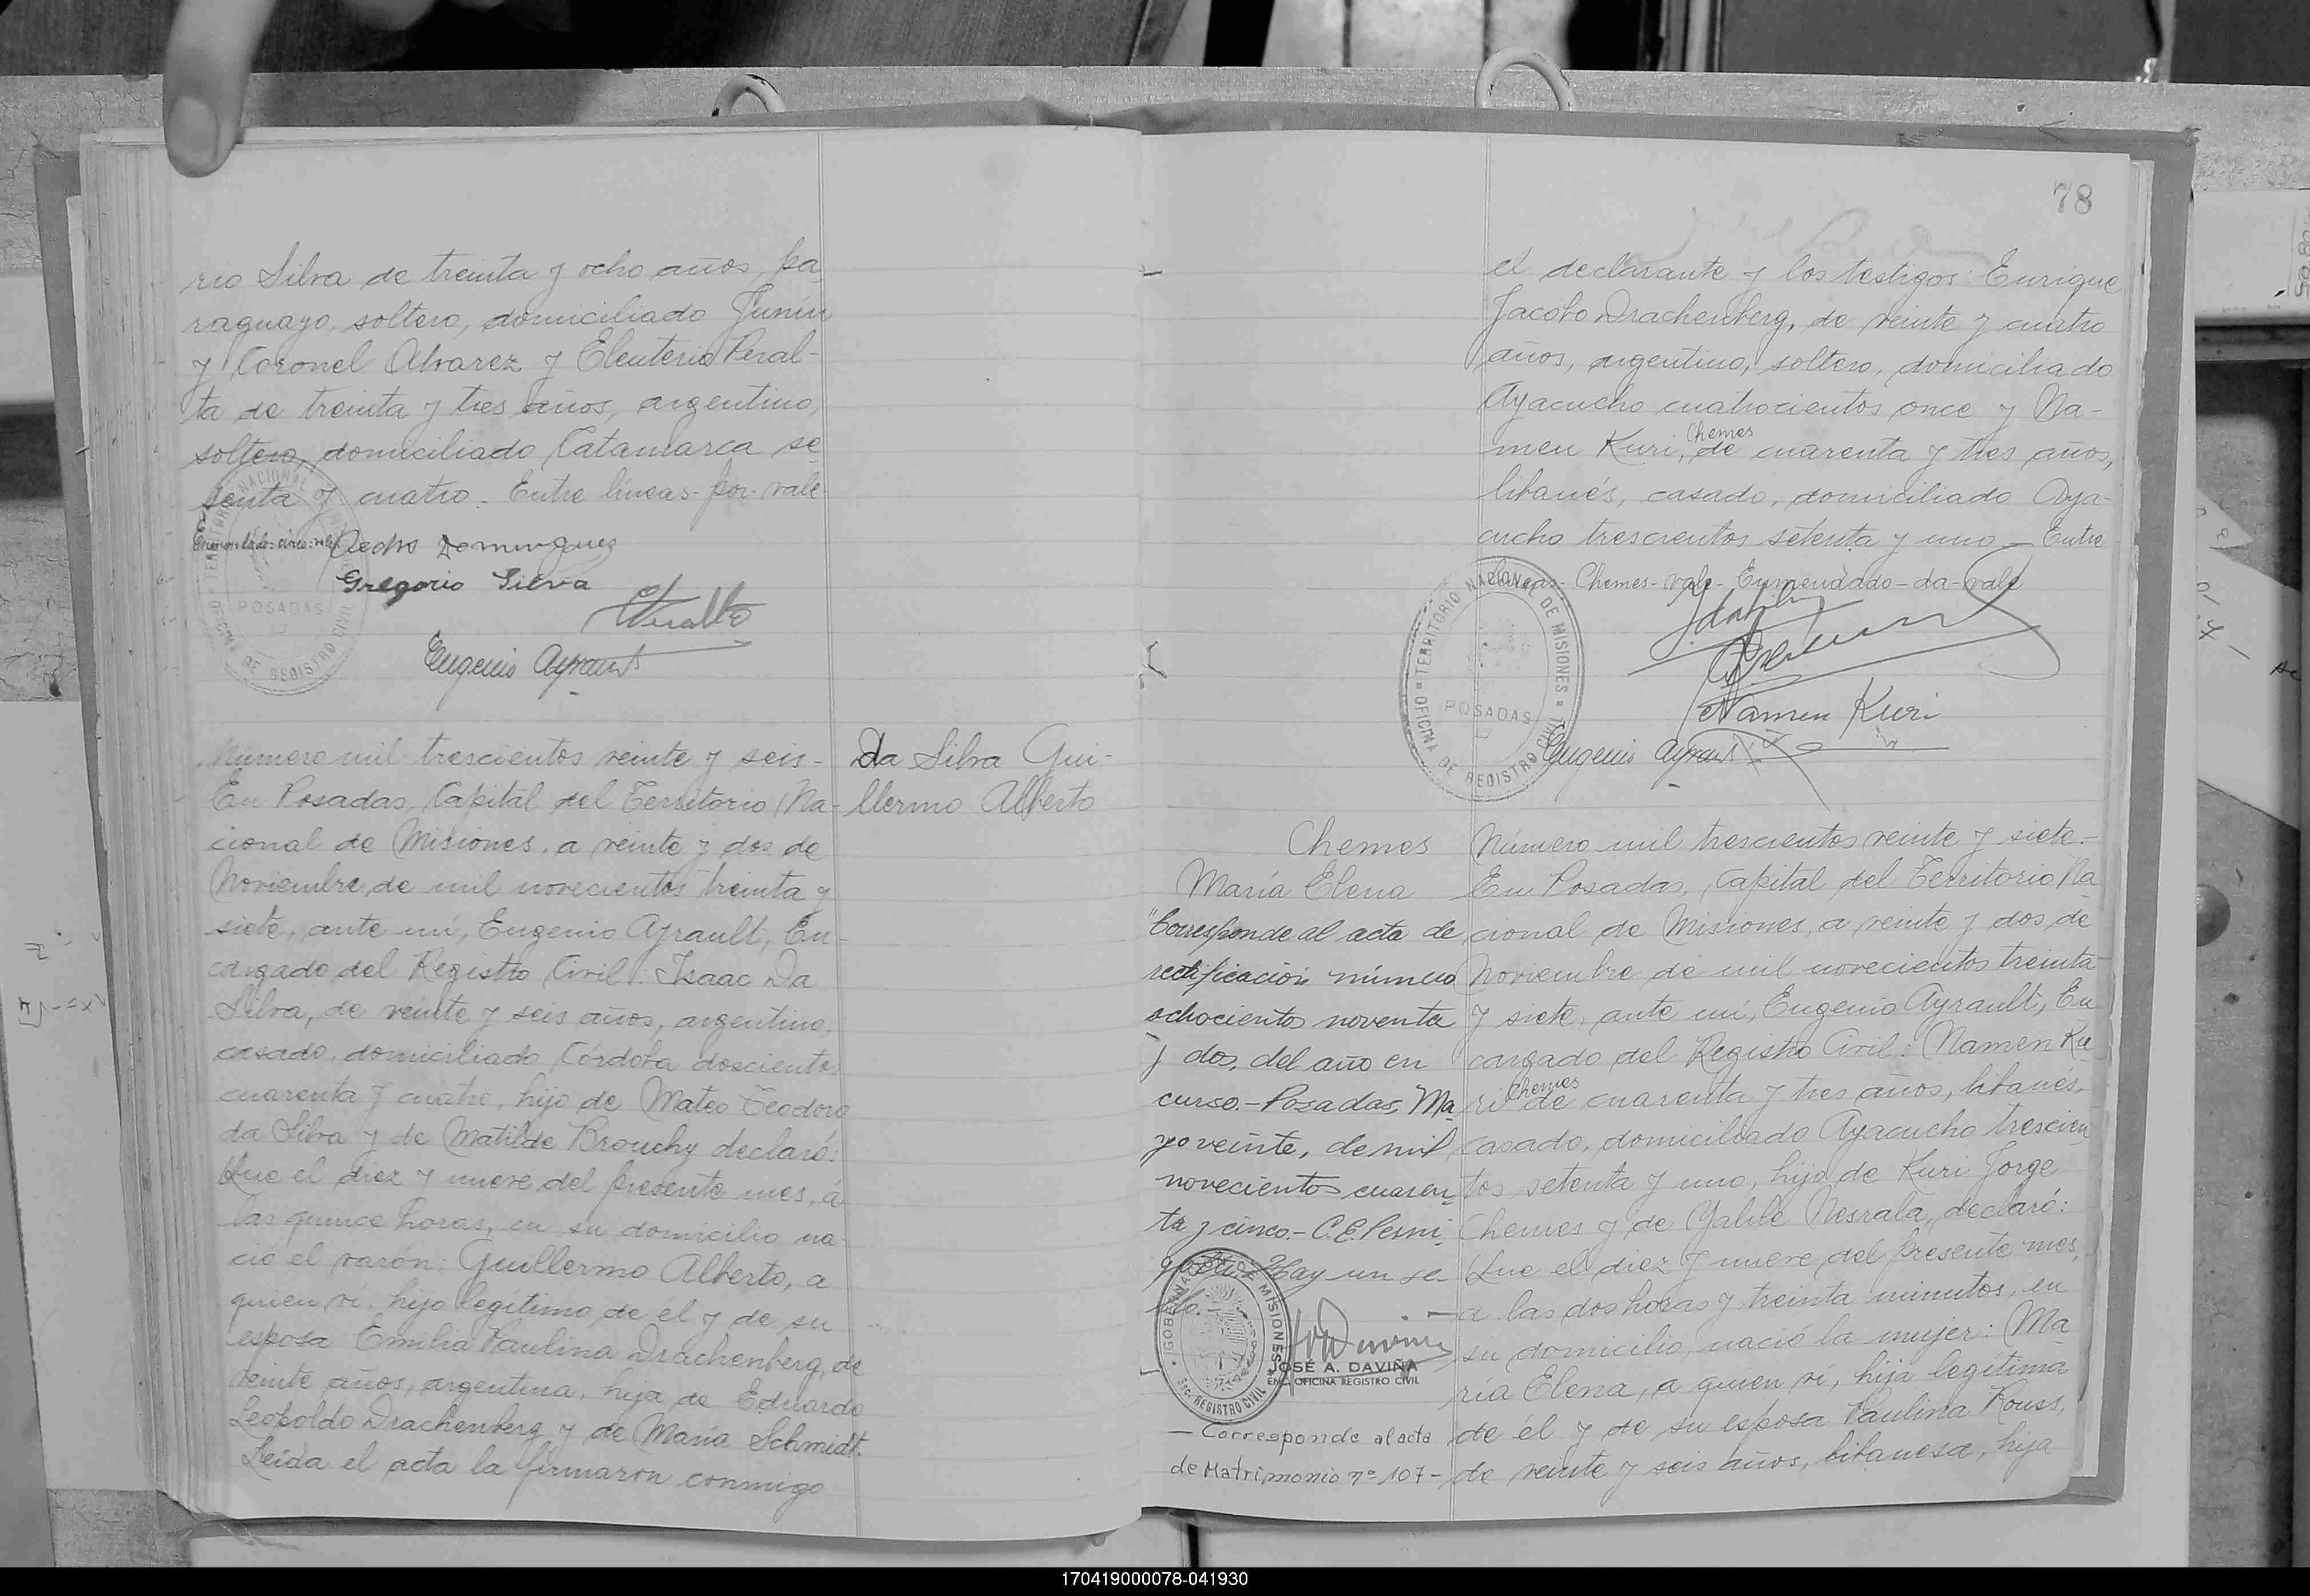 rio Silva de treinta y ocho años, pa-
raguayo, soltero, domiciliado Junín
y Coronel Alvarez y Eleuterio Peral-
ta de treinta y tres años, argentino,
soltero, domiciliado Catamarca se-
senta y cuatro. Entre líneas-por-vale-
Enmendado: cinco: vale
Pedro Dominguez
Gregorio Silva
EPeralta
Eugenio Ayrault
TERRITORIO NACIONAL DE MISIONES
POSADAS
OFICINA DE REGISTRO CIVIL
Número mil trescientos veinte y seis-
En Posadas, Capital del Territorio Na-
cional de Misiones, a veinte y dos de
Noviembre de mil novecientos treinta y
siete, ante mí, Eugenio Ayrault, En-
cargado del Registro Civil: Isaac Da
Silva, de veinte y seis años, argentino,
casado, domiciliado Córdoba doscientos
cuarenta y cuatro, hijo de Mateo Teodoro
da Silva y de Matilde Brouchy declaró:
Que el diez y nueve del presente mes, a
las quince horas, en su domicilio na-
ció el varón: Guillermo Alberto, a
quien ví, hijo legítimo de él y de su
esposa Emilia Paulina Drachenberg, de
veinte años, argentina, hija de Eduardo
Leopoldo Drachenberg y de María Schmidt.
Leída el acta la firmaron conmigo
Da Silva Gui-
llermo Alberto
78
el declarante y los testigos: Enrique
Jacobo Drachenberg, de veinte y cuatro
años, argentino, soltero, domiciliado
Ayacucho cuatrocientos once y Na-
Chemes
men Kuri, de cuarenta y tres años,
libanés, casado, domiciliado Aya-
cucho trescientos setenta y uno.- Entre
líneas- Chemes-vale- Enmendado-da-vale
Namen Kuri
Eugenio Ayrault
TERRITORIO NACIONAL DE MISIONES
POSADAS
OFICINA DE REGISTRO CIVIL
Chemes
María Elena
"Corresponde al acta de
rectificación número
ochocientos noventa
y dos, del año en
curso.- Posadas, Ma-
yo veinte, de mil
novecientos cuaren-
ta y cinco.- C.E.
Hay un se-
llo.
GOBERNACION DE MISIONES
REGISTRO CIVIL
JOSÉ A. DAVIÑA
ENC. OFICINA REGISTRO CIVIL
- Corresponde al acta
de Matrimonio nº 107-
Número mil trescientos veinte y siete.-
En Posadas, Capital del Territorio Na
cional de Misiones, a veinte y dos de
Noviembre de mil novecientos treinta
y siete, ante mí, Eugenio Ayrault, En
cargado del Registro Civil: Namen Ku-
Chemes
ri de cuarenta y tres años, libanés,
casado, domiciliado Ayacucho trescien
tos setenta y uno, hijo de Kuri Jorge
Chemes y de Yalile Nesrala, declaró:
Que el diez y nueve del presente mes,
a las dos horas y treinta minutos, en
su domicilio, nació la mujer: Ma
ría Elena, a quien ví, hija legítima
de él y de su esposa Paulina Kouss,
de veinte y seis años, libanesa, hija
170419000078-041930